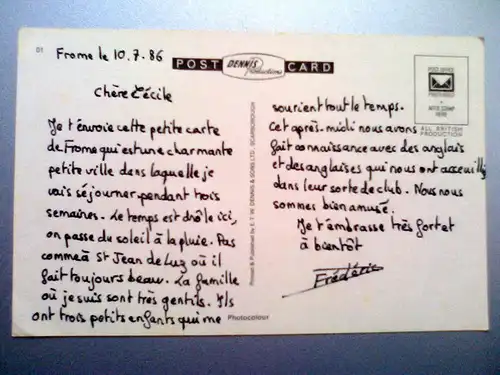 01
Frome le 10.7.86
POST DENNIS Productions CARD
Chère Cécile
Je t'envoie cette petite carte
de Frome qui est une charmante
petite ville dans laquelle je
vais séjourner pendant trois
semaines. Le temps est drôle ici,
on passe du soleil à la pluie. Pas
comme à St Jean de Luz où il
fait toujours beau. La famille
où je suis sont très gentils. Ils
ont trois petits enfants qui me
Photocolour
Printed & Published by E. T. W. DENNIS & SONS LTD., SCARBOROUGH
POST OFFICE
PREFERRED
AFFIX STAMP
HERE
ALL BRITISH
PRODUCTION
sourient tout le temps.
Cet après-midi nous avons
fait connaissance avec des anglais
et des anglaises qui nous ont
dans leur sorte de club. Nous nous
sommes bien amusé.
Je t'embrasse très fort et
à bientôt
Frédéric